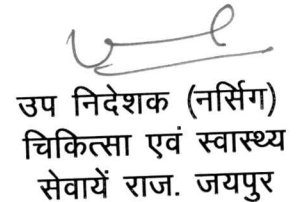 उप निदेशक (नर्सिग)
चिकित्सा एवं स्वास्थ्य
सेवायें राज. जयपुर